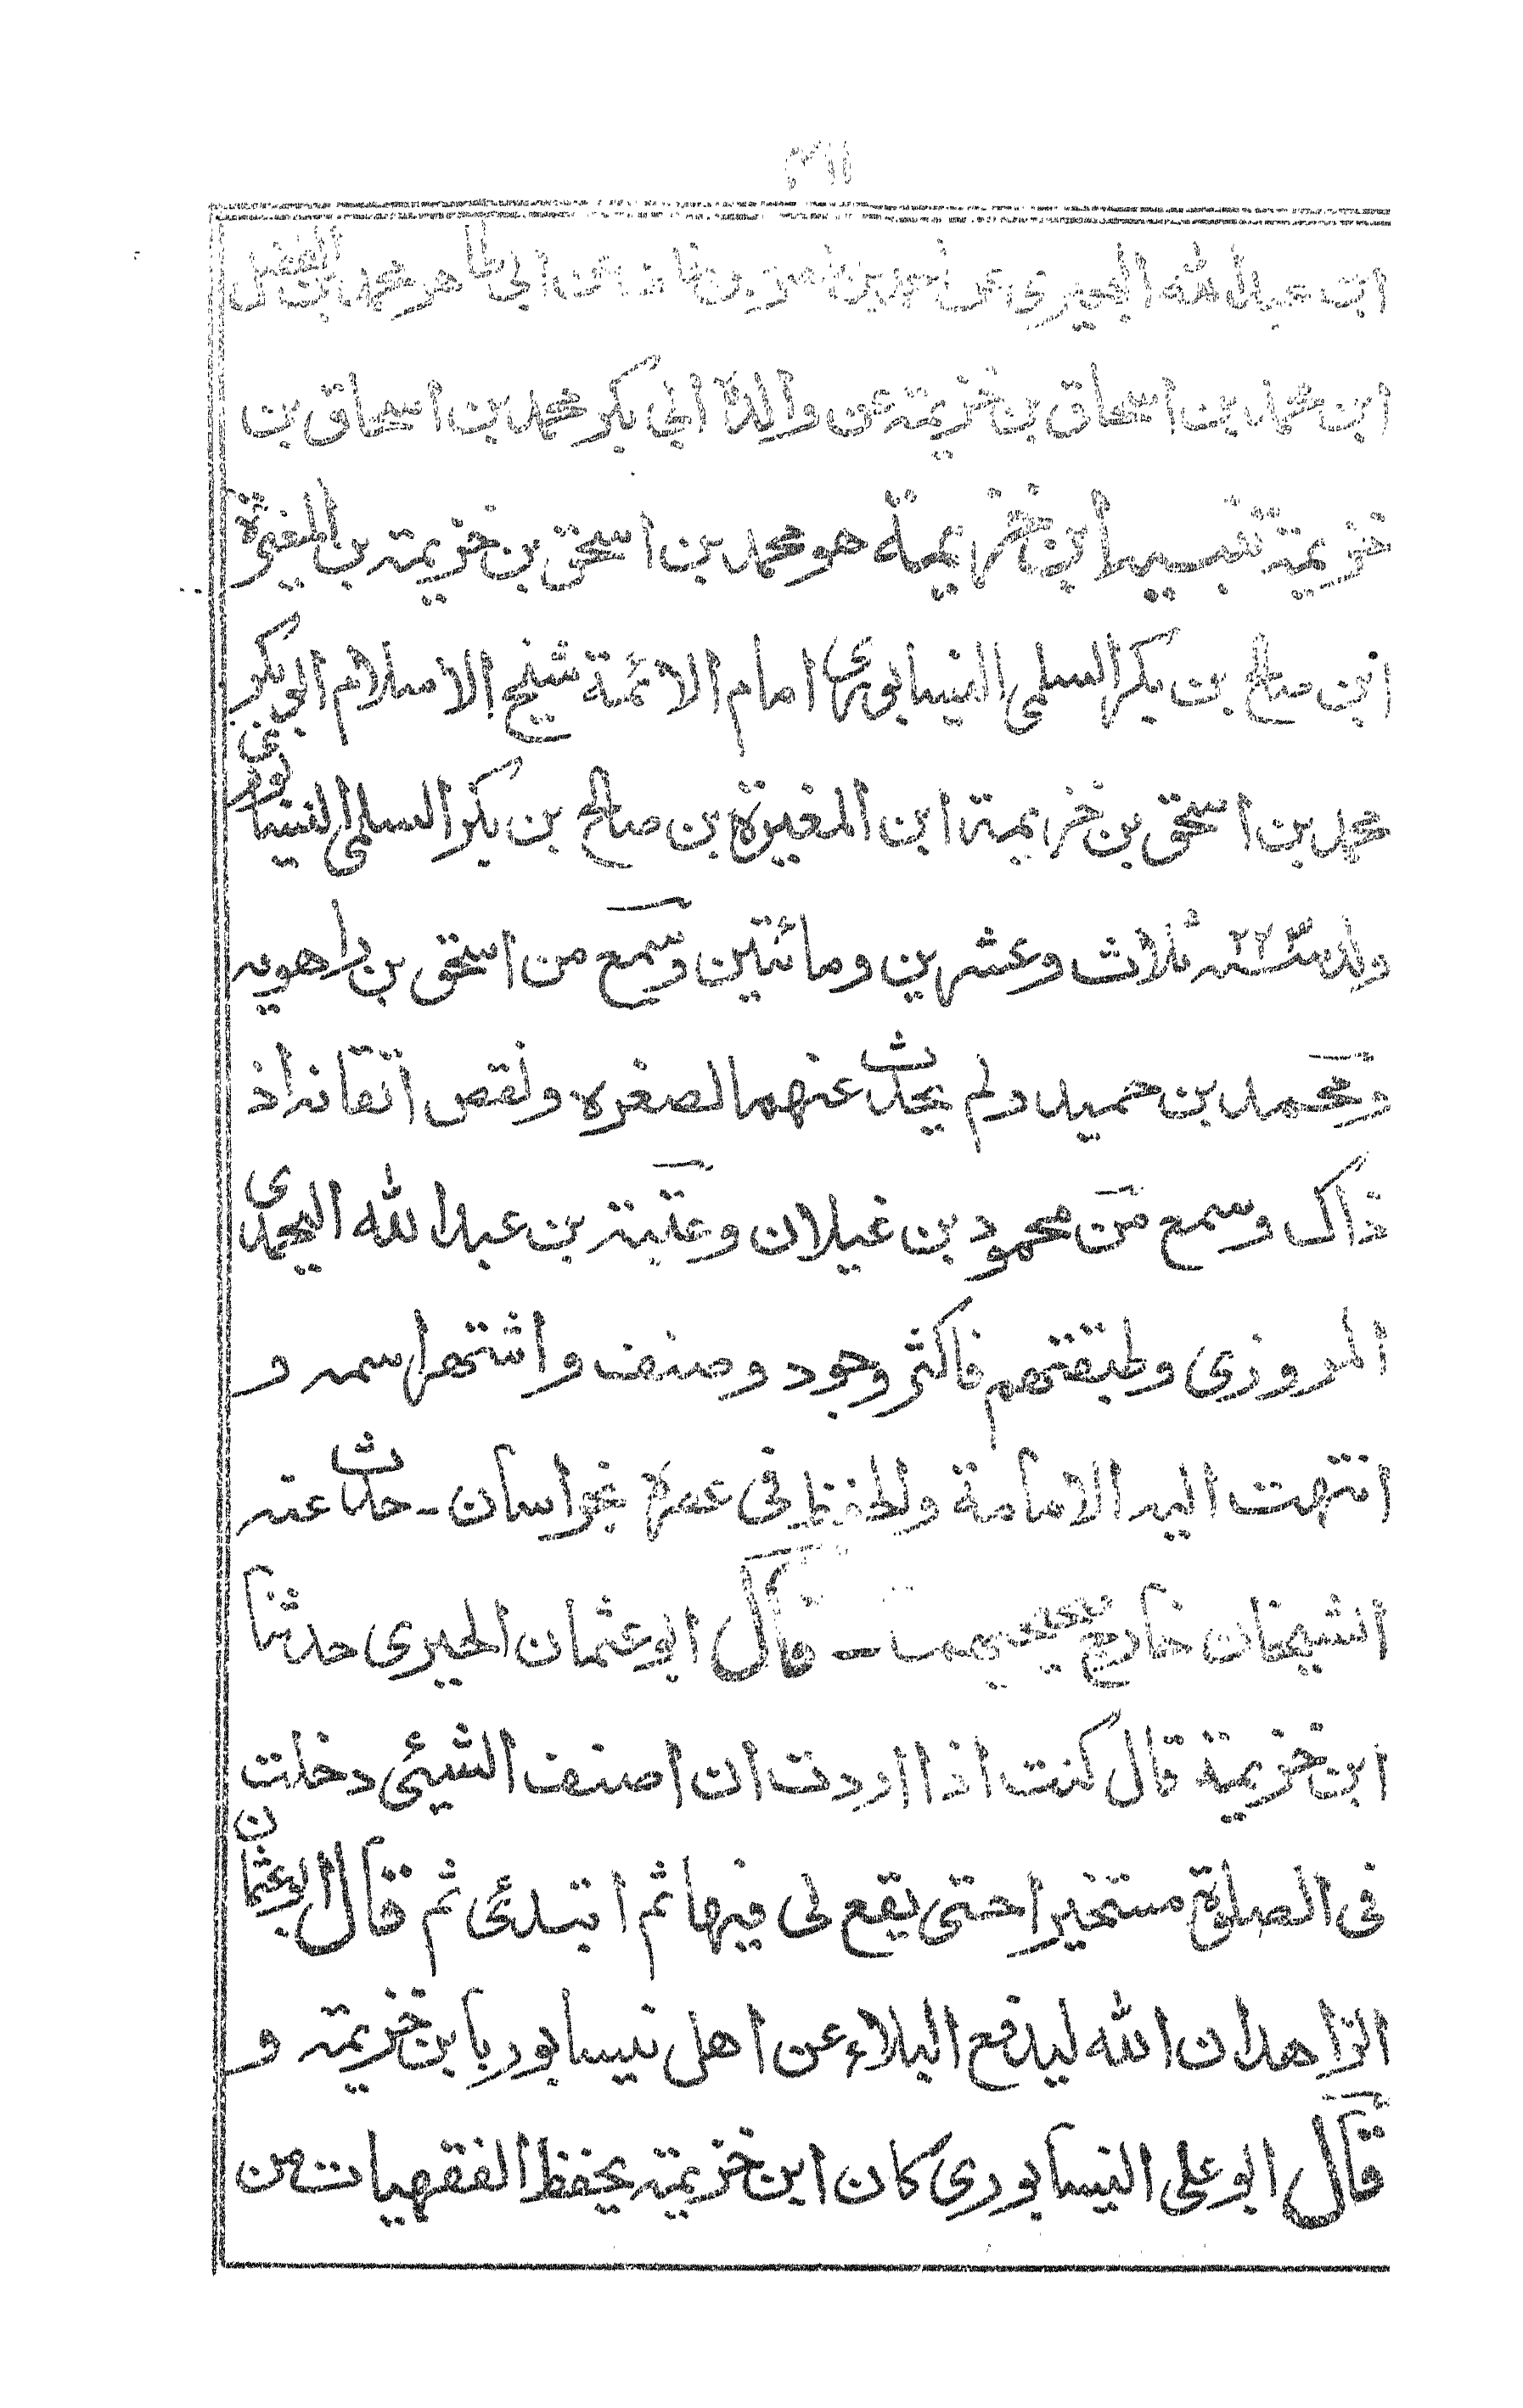 ابن عبد الله البحيري عن ابي طاهر محمد بن الفضل
ابن محمد بن اسحاق بن خزيمة عن والده ابي بكر محمد بن اسحاق بن
خزيمة تنبيه ابن خزيمة هو محمد بن اسحق بن خزيمة بن المغيرة
ابن صالح بن بكر السلمى النيسابورى امام الائمة شيخ الاسلام ابي بكر
محمد بن اسحق بن خزيمة ابن المغيرة بن صالح بن بكر السلمى النيسابورى
ولد سنة ٢٢٣ ثلاث وعشرين ومائتين وسمع من اسحق بن راهويه
ومحمد بن حميد ولم يحدث عنهما لصغره ونقص اتقانه اذ
ذاك وسمع من محمود بن غيلان وعتبة بن عبد الله اليحمدى
المروزى وطبقتهم فاكثر وجود وصنف واشتهر اسمه و
انتهت اليه الامامة والحفظ فى عصره بخراسان - حدث عنه
الشيخان خارج صحيحيهما - قال ابو عثمان الحيرى حدثنا
ابن خزيمة قال كنت اذا اردت ان اصنف الشيئى دخلت
فى الصلوة مستخيرا حتى يقع لى فيها ثم ابتدئى ثم قال ابو عثمان
الزاهد ان الله ليدفع البلاء عن اهل نيسابور بابن خزيمة و
قال ابو على النيسابورى كان ابن خزيمة يحفظ الفقهيات من